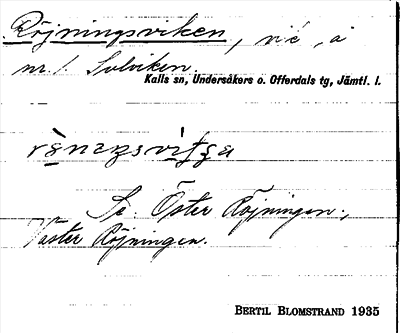 Röjningsviken, vik, å
nr 1 Solviken.
Kalls sn, Undersåkers o. Offerdals tg, Jämtl. l.
Se Öster Röjningen,
Väster Röjningen.
BERTIL BLOMSTRAND 1935